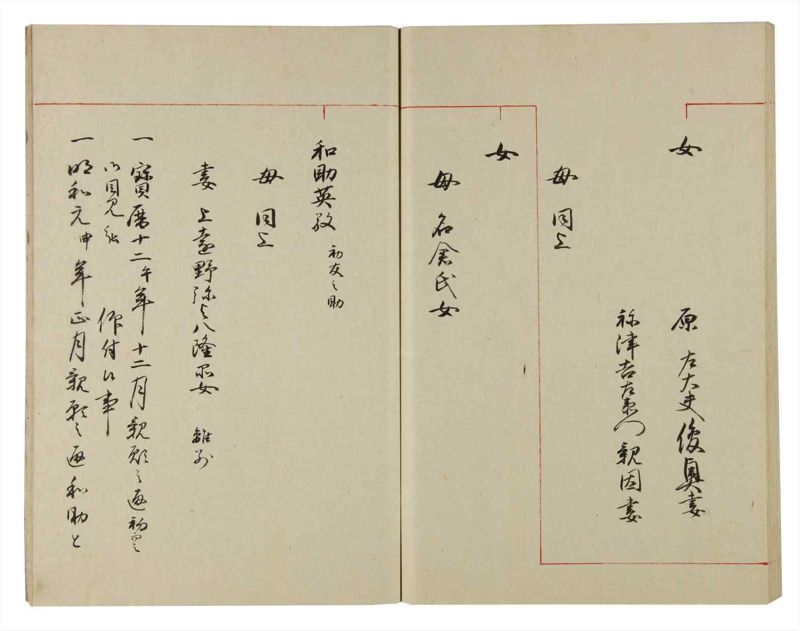 女
原 左大夫俊貞妻
祢津吉左衛門親因妻
母 同上
女
母 名倉氏女
和助英致 初友之助
母 同上
妻 上遠野弥与八隆 女 離別
一 寳暦十二午年十二月親願之通初而
御目見被 仰付候事
一 明和元申年正月親願之通和助と